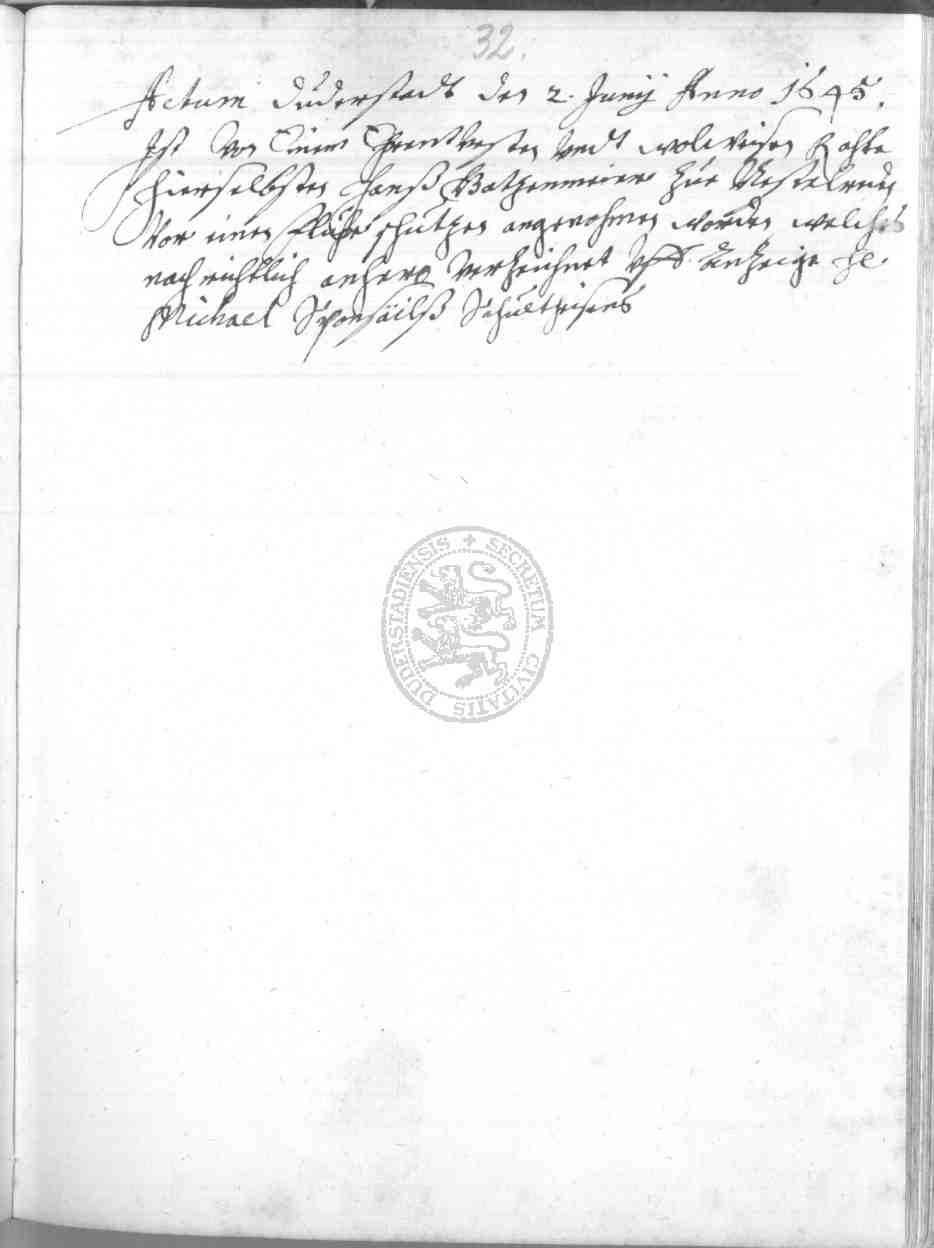 32.
Actum Duderstadt den 2. Junij Anno 1645.
Ist von Einem Ehrentvesten undt wolweisen Rahte
hierselbsten Hanß Batzenmeier zue Nesselreden
vor einen Fluhr schützen angenohmen worden welches
nachrichtlich anhero verzeichnet uff anzeige He.
Michael Schultheisens
SECRETUM CIVITATIS DUDERSTADIENSIS